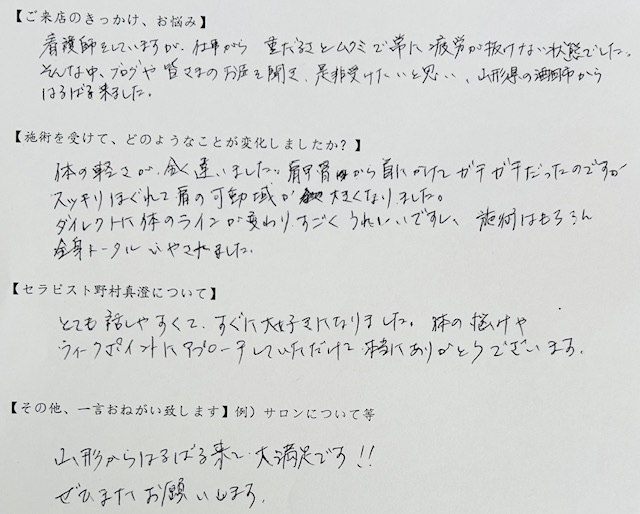 【ご来店のきっかけ、お悩み】
看護師をしていますが、仕事がら 重だるさとムクミで常に疲労が抜けない状態でした。
そんな中、ブログや皆さまのお声を聞き、是非受けたいと思い、山形県の酒田市から
はるばる来ました。
【施術を受けて、どのようなことが変化しましたか？】
体の軽さが全く違いました。肩甲骨から首にかけてガチガチだったのですが
スッキリほぐれて肩の可動域が大きくなりました。
ダイレクトに体のラインが変わり、すごくうれしいですし、施術はもちろん
全身トータルいやされました。
【セラピスト野村真澄について】
とても話しやすくて、すぐに大好きになりました。体の抜けや
ウィークポイントにアプローチしていただけて本当にありがとうございます。
【その他、一言おねがい致します】例）サロンについて等
山形からはるばる来て大満足です!!
ぜひまたお願いします。